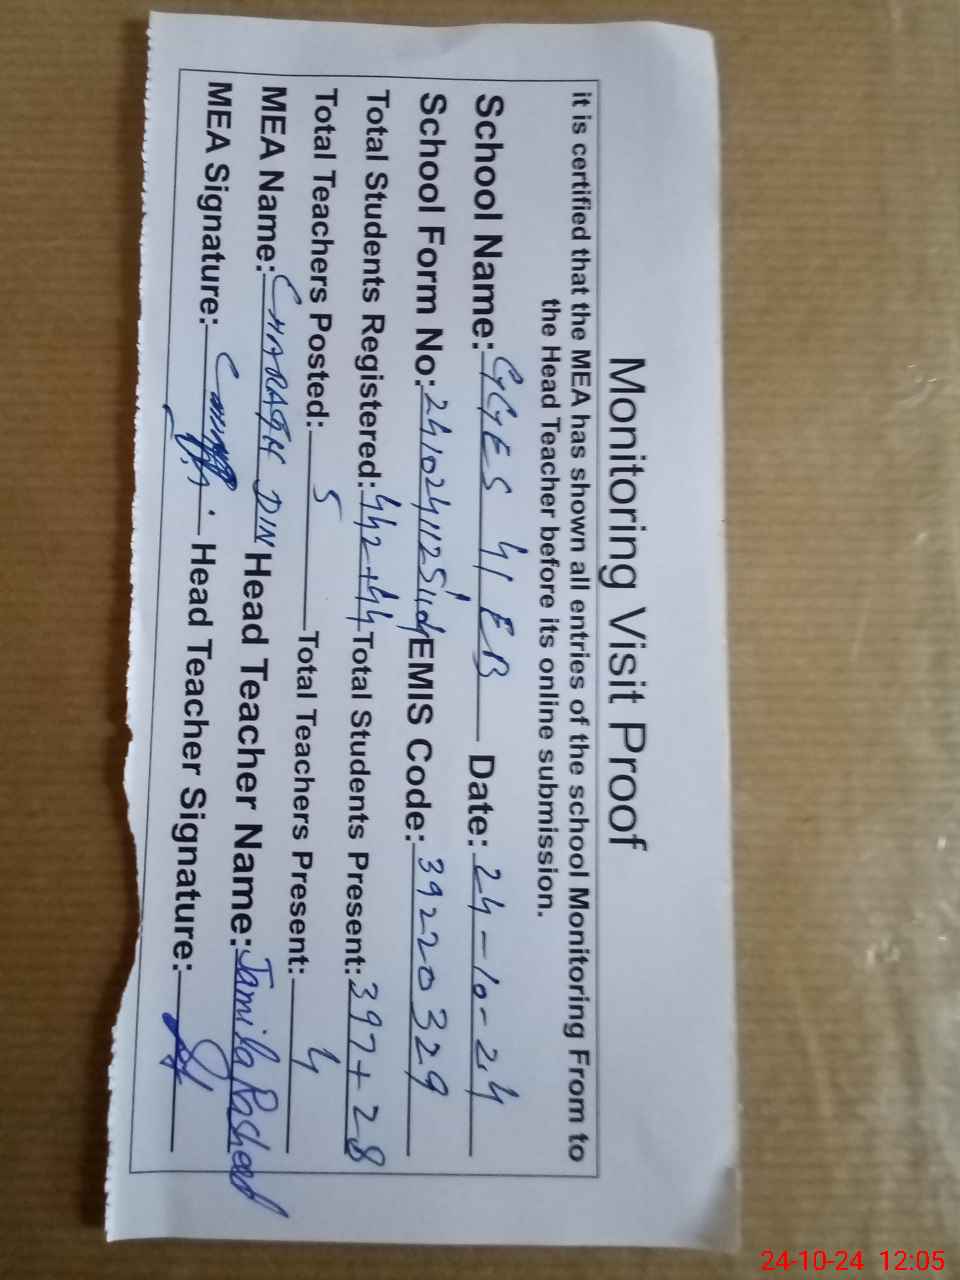 Monitoring Visit Proof
it is certified that the MEA has shown all entries of the school Monitoring From to
the Head Teacher before its online submission.
School Name: GGES 41 EB Date: 24-10-24
School Form No: EMIS Code: 39220329
Total Students Registered: 442+44 Total Students Present: 397+28
Total Teachers Posted: 5 Total Teachers Present: 4
MEA Name: CHARAGH DIN Head Teacher Name: Jamila Rashed
MEA Signature: Head Teacher Signature:
24-10-24 12:05